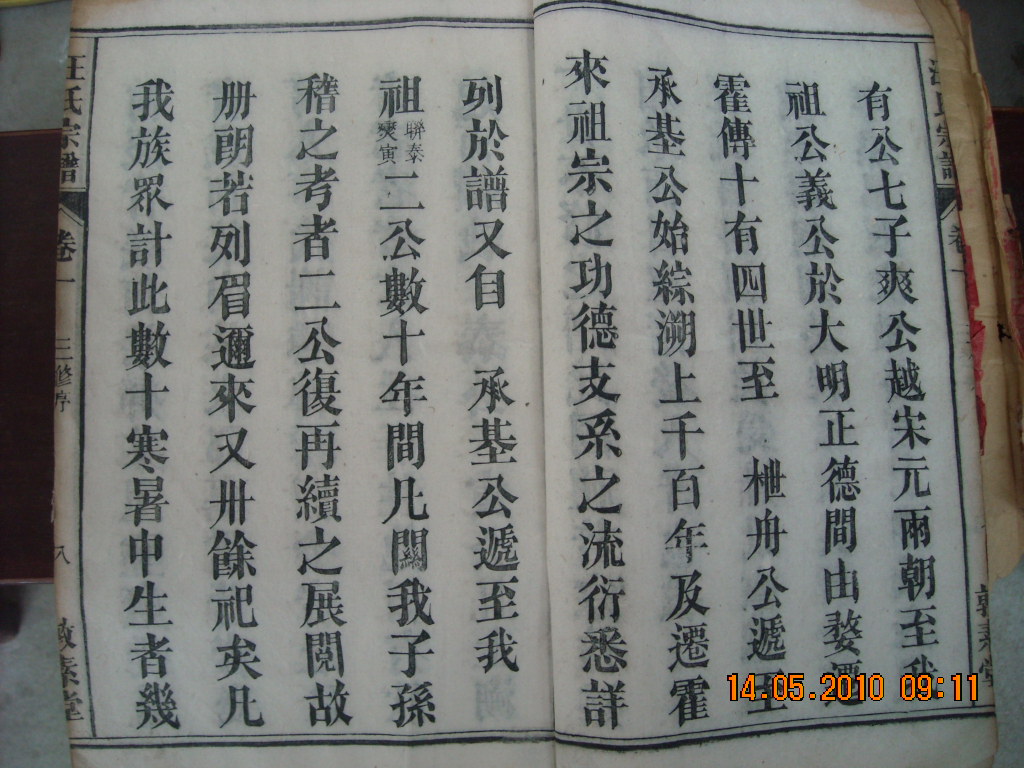 有公七子爽公越宋元兩朝至我
祖公義公於大明正德間由婺遷
霍傳十有四世至 枻舟公遞至
承基公始綜溯上千百年及遷霍
來祖宗之功德支系之流衍悉詳
列於譜又自 承基公遞至我
祖聯奏寅二公數十年間凡關我子孫
稽之考者二公復再續之展閱故
册朗若列眉邇來又卅餘祀矣凡
我族眾計此數十寒暑中生者幾
汪氏宗譜 卷一 三修序 八 敦素堂
14.05.2010 09:11